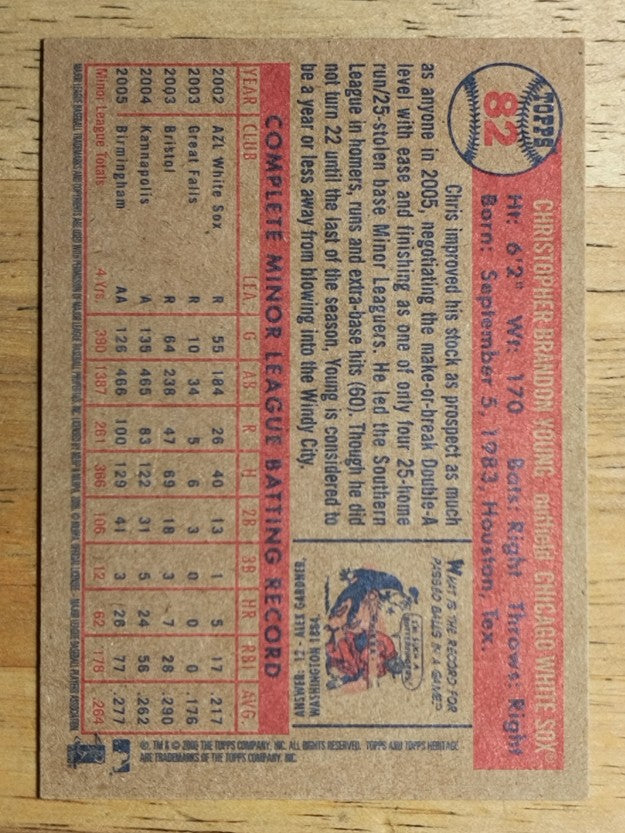 TOPPS
82
CHRISTOPHER BRANDON YOUNG outfield CHICAGO WHITE SOX®
Ht: 6'2" Wt: 170 Bats: Right Throws: Right
Born: September 5, 1983, Houston, Tex.
Chris improved his stock as prospect as much
as anyone in 2005, negotiating the make-or-break Double-A
level with ease and finishing as one of only four 25-home
run/25-stolen base Minor Leaguers. He led the Southern
League in homers, runs and extra-base hits (60). Though he did
not turn 22 until the last of the season, Young is considered to
be a year or less away from blowing into the Windy City.
WHAT IS THE RECORD FOR
PASSED BALLS IN A GAME?
ANSWER: 12 - ALEX GARDNER,
WASHINGTON 1884.
COMPLETE MINOR LEAGUE BATTING RECORD
YEAR CLUB LEA. G AB R H 2B 3B HR RBI AVG.
2002 AZL White Sox R 55 184 26 40 13 1 5 17 .217
2003 Great Falls R 10 34 5 6 3 0 0 0 .176
2003 Bristol R 64 238 47 69 18 3 7 28 .290
2004 Kannapolis A 135 465 83 122 31 5 24 56 .262
2005 Birmingham AA 126 466 100 129 41 3 26 77 .277
Minor League Totals 4-Yrs. 390 1387 261 366 106 12 62 178 .264
®, TM & © 2006 THE TOPPS COMPANY, INC. ALL RIGHTS RESERVED. TOPPS AND TOPPS HERITAGE
ARE TRADEMARKS OF THE TOPPS COMPANY, INC.